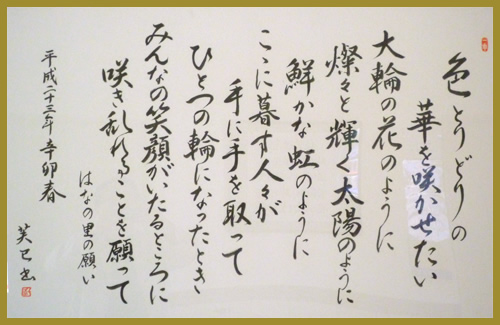 色とりどりの
華を咲かせたい
大輪の花のように
燦々と輝く太陽のように
鮮かな虹のように
こゝに暮す人々が
手に手を取って
ひとつの輪になったとき
みんなの笑顔がいたるところに
咲き乱れることを願って
はなの里の願い
平成二十三年辛卯春